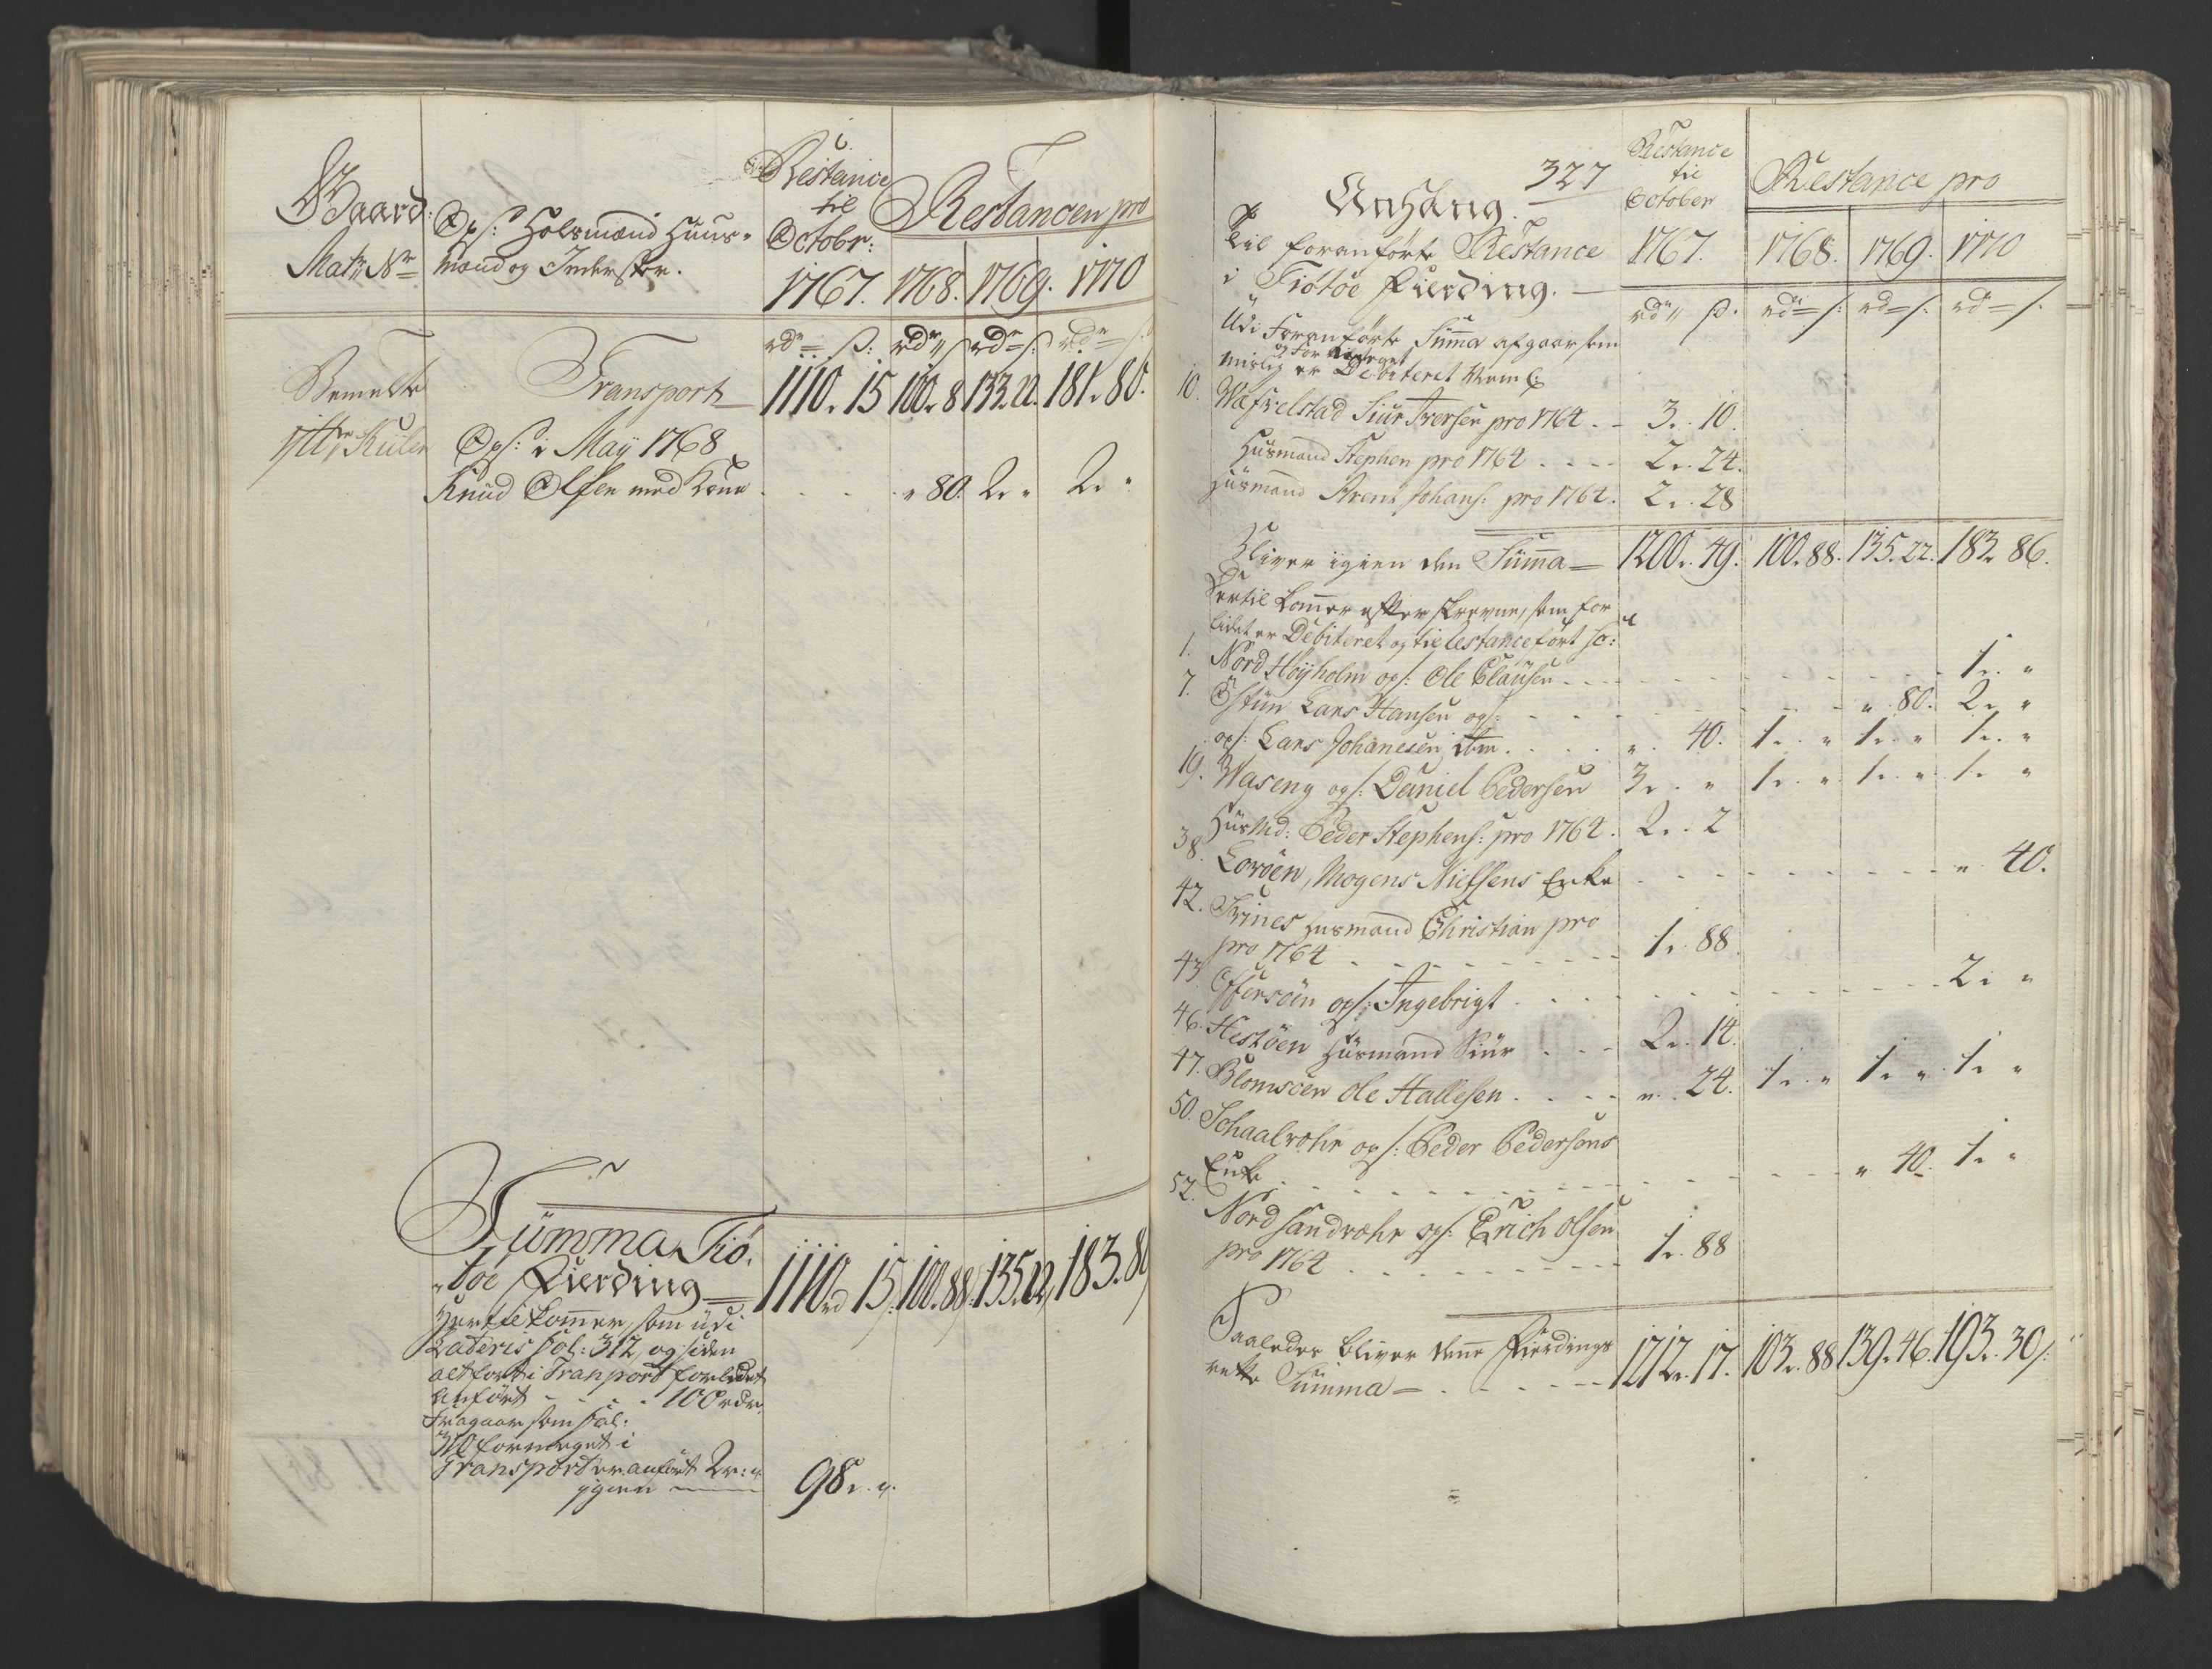 Gaard:
Matr. Nr
Ops: Holsmænd Huus-
mænd og Inderster.
Restance
til
Octobr:
1767.
Restancen pro
1768. 1769. 1770
rdr ß: rdr ß rdr ß: rdr ß:
Bemelte
Transport 1110. 15 100. 8 133. 22. 181. 80.
Ops: i Maÿ 1768
Knud Olsen med Kone . . . . „ 80. 2. „ 2. „
Summa Tiø-
tøe Fierding 1110rd 15: 100. 88. 135. 22, 183. 80
Hertil kommer, som udi
Lateris Fol: 312, og siden
altfort i Transport forlidet
anført - - - 100 rdr.
Fragaar som Fol:
310 formeget i
Transport er anført 2r: „
igien 98. „.
327
Anhang.
Til foranførte Restance
i Tiøtøe Fierding.
Restance
til
October
1767.
Restance pro
1768. 1769. 1770
rdr ß. rdr ß: rd ß: rdr ß.
Udi Foranførte Summa afgaar som
og for meget
mislig er Debiteret Neml:
10. Wefvelstad Siur Iversen pro 1764 . - 3. 10.
Husmand Stephen pro 1764 . . . . 2. 24.
Husmand Arent Johans: pro 1764. 2. 28
Bliver igien den Summa 1200. 49. 100. 88. 135. 22. 183. 86.
Hertil kommer efterskrevne, som for
lidet er Debiteret og til Restance ført so:
1. Nord Høÿholm ops: Ole Clausen - - - 1. „
7. Østun Lars Hansen ops: - - - „ 80. 2. „
ops: Lars Johanesen ibm . . . „ 40. 1. „ 1. „ 1. „
19. Waseng ops: Daniel Pedersen 3. „ 1. „ 1. „ 1. „
Husmd: Peder Stephens: pro 1764. 2. 2
38. Lorøen, Mogens Nielsens Enke - - - „ 40.
42. Trines Husmand Christian pro
pro 1764 - - - 1. 88.
43. Offersøen ops: Ingebrigt - - - 2. „
46. Hestøen Husmand Siur . . . 2. 14.
47. Blomsøen Ole Hallesen . . . . „ 24. 1. „ 1. „ 1. „
50. Schaalvohr ops: Peder Pedersens
Enke - - - „ 40. 1. „
52. Nord Sandvohr ops: Erich Olsen
pro 1764 - - - 1. 88
Saaledes bliver denne Fierdings
rette Summa - - - 1212. 17. 103. 88 139. 46. 193. 30ß: